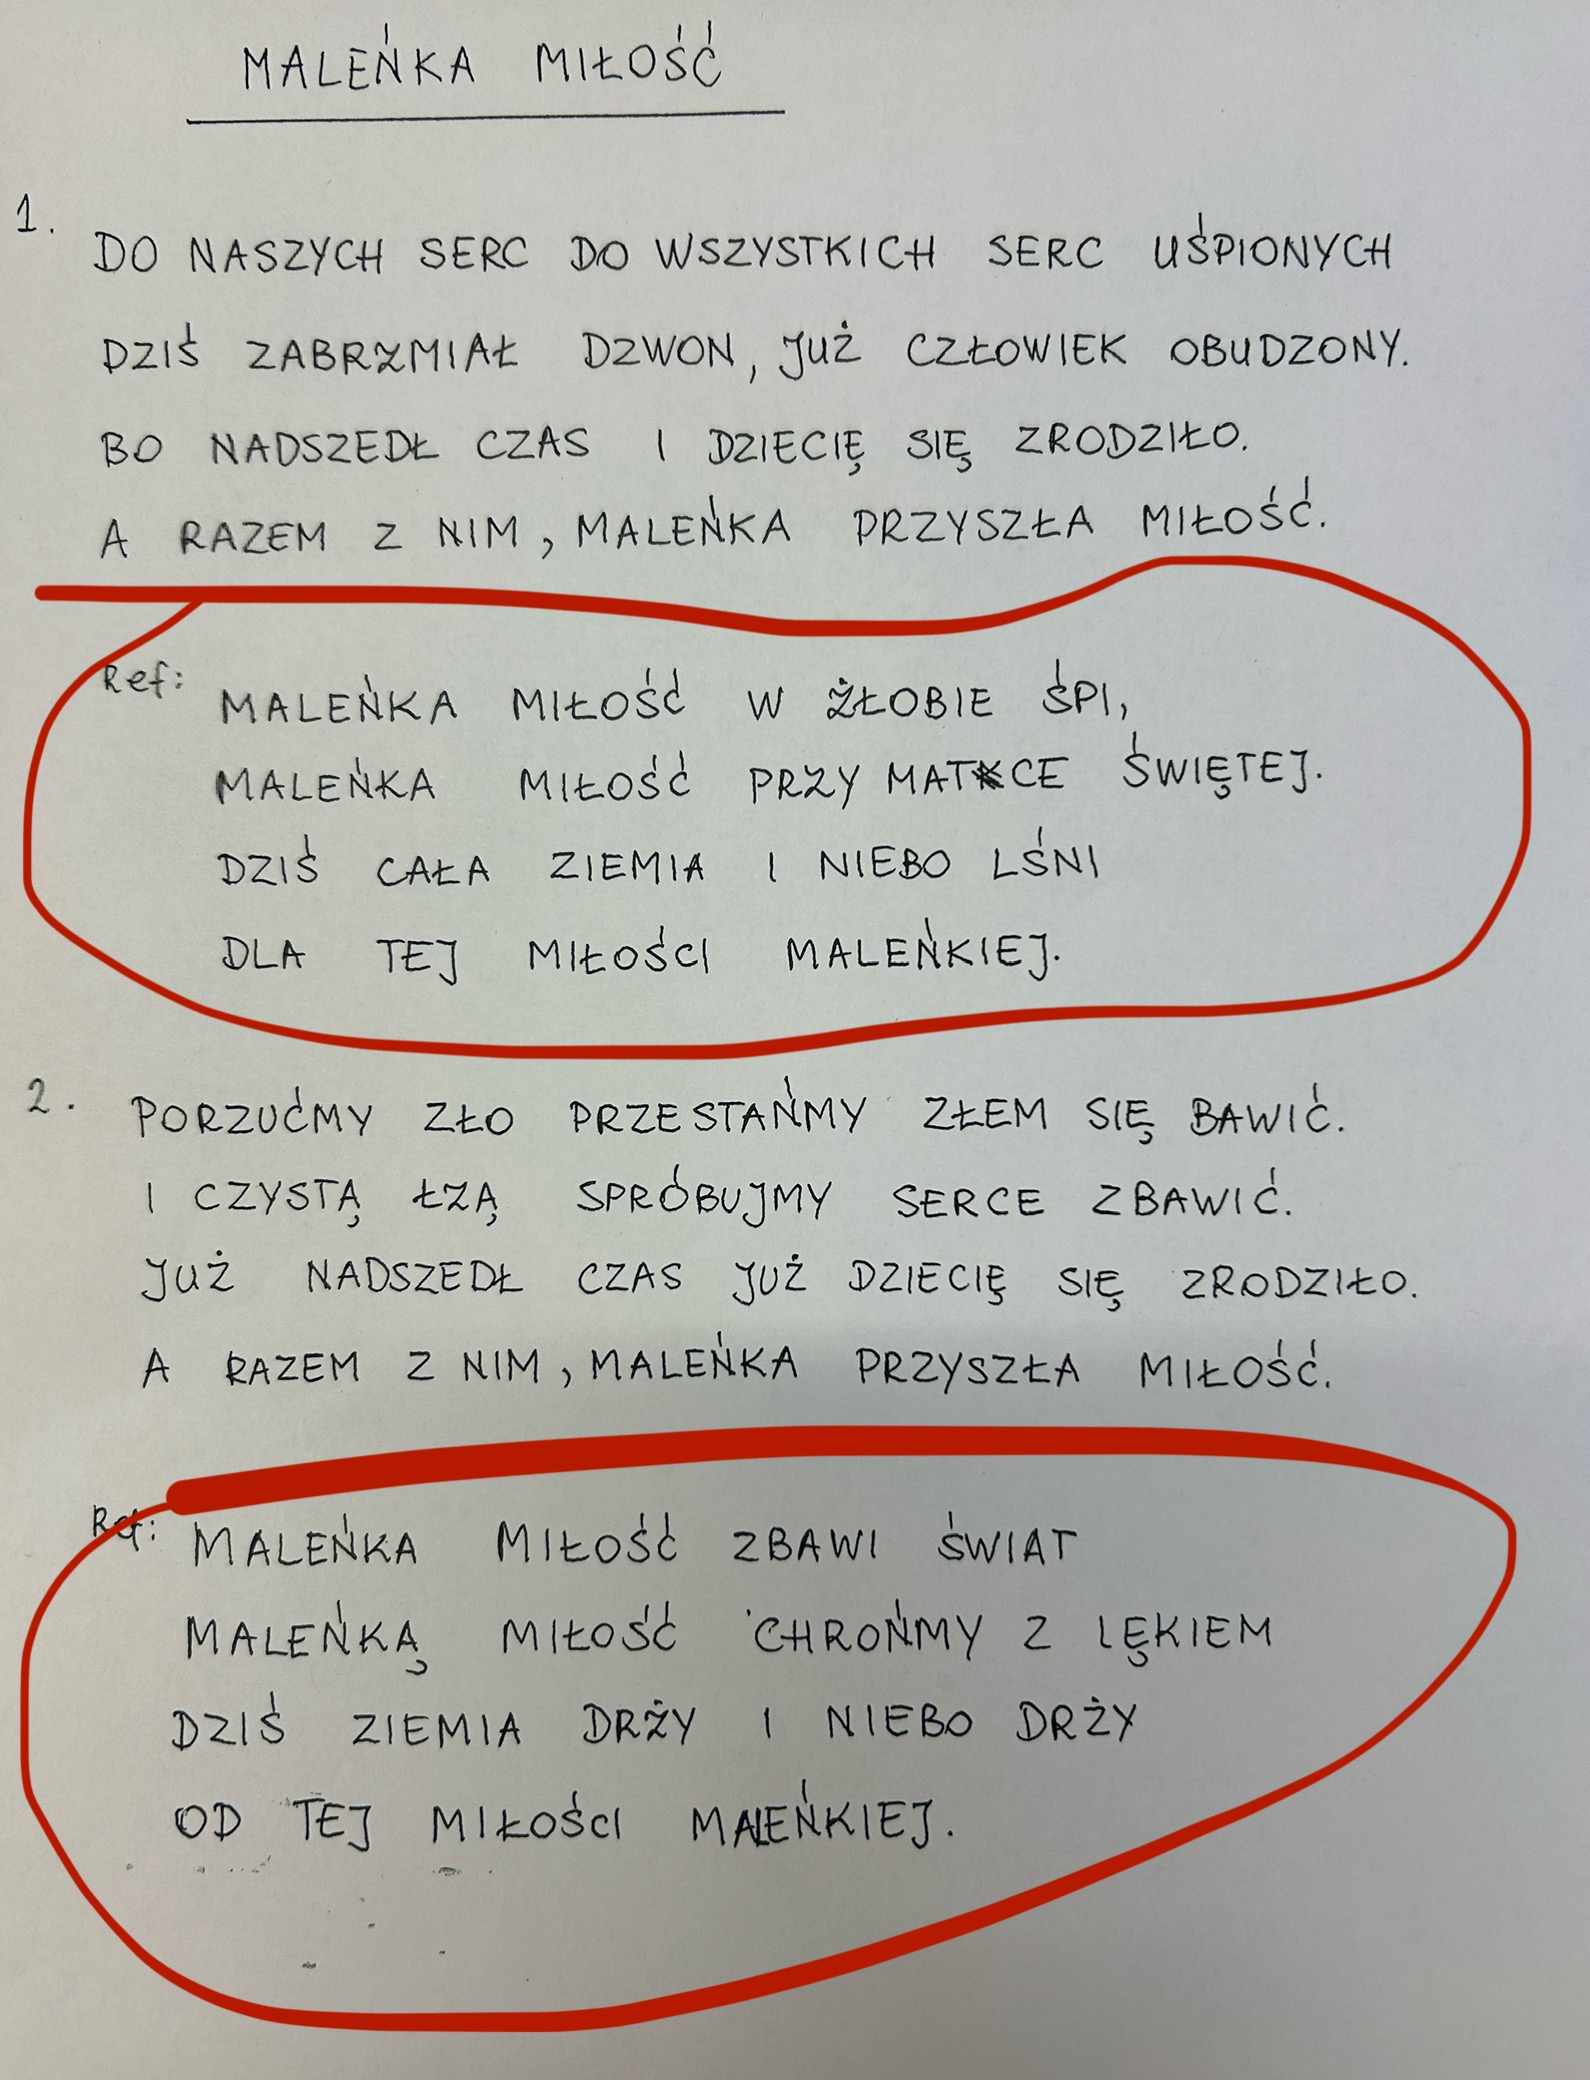 MALEŃKA MIŁOŚĆ
1.
DO NASZYCH SERC DO WSZYSTKICH SERC UŚPIONYCH
DZIŚ ZABRZMIAŁ DZWON, JUŻ CZŁOWIEK OBUDZONY.
BO NADSZEDŁ CZAS I DZIECIĘ SIĘ ZRODZIŁO.
A RAZEM Z NIM, MALEŃKA PRZYSZŁA MIŁOŚĆ.
Ref:
MALEŃKA MIŁOŚĆ W ŻŁOBIE ŚPI,
MALEŃKA MIŁOŚĆ PRZY MATCE ŚWIĘTEJ.
DZIŚ CAŁA ZIEMIA I NIEBO LŚNI
DLA TEJ MIŁOŚCI MALEŃKIEJ.
2. PORZUĆMY ZŁO PRZESTAŃMY ZŁEM SIĘ BAWIĆ.
I CZYSTĄ ŁZĄ SPRÓBUJMY SERCE ZBAWIĆ.
JUŻ NADSZEDŁ CZAS JUŻ DZIECIĘ SIĘ ZRODZIŁO.
A RAZEM Z NIM, MALEŃKA PRZYSZŁA MIŁOŚĆ.
Ref: MALEŃKA MIŁOŚĆ ZBAWI ŚWIAT
MALEŃKĄ MIŁOŚĆ CHROŃMY Z LĘKIEM
DZIŚ ZIEMIA DRŻY I NIEBO DRŻY
OD TEJ MIŁOŚCI MALEŃKIEJ.